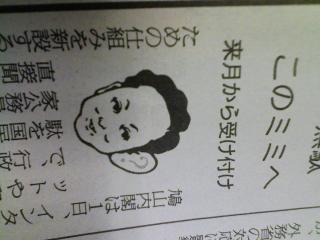 このミミへ
来月から受け付け
鳩山内閣は１日、インタ
ットや
で、行政
駄を国
家公務員
直接聞
ための仕組みを新設する